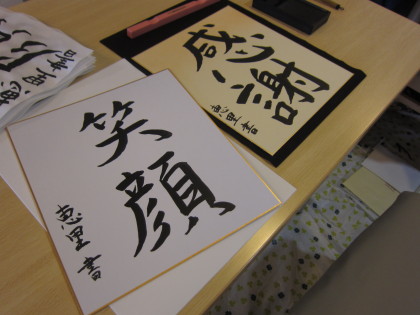 笑顔
恵里書
感謝
恵里書